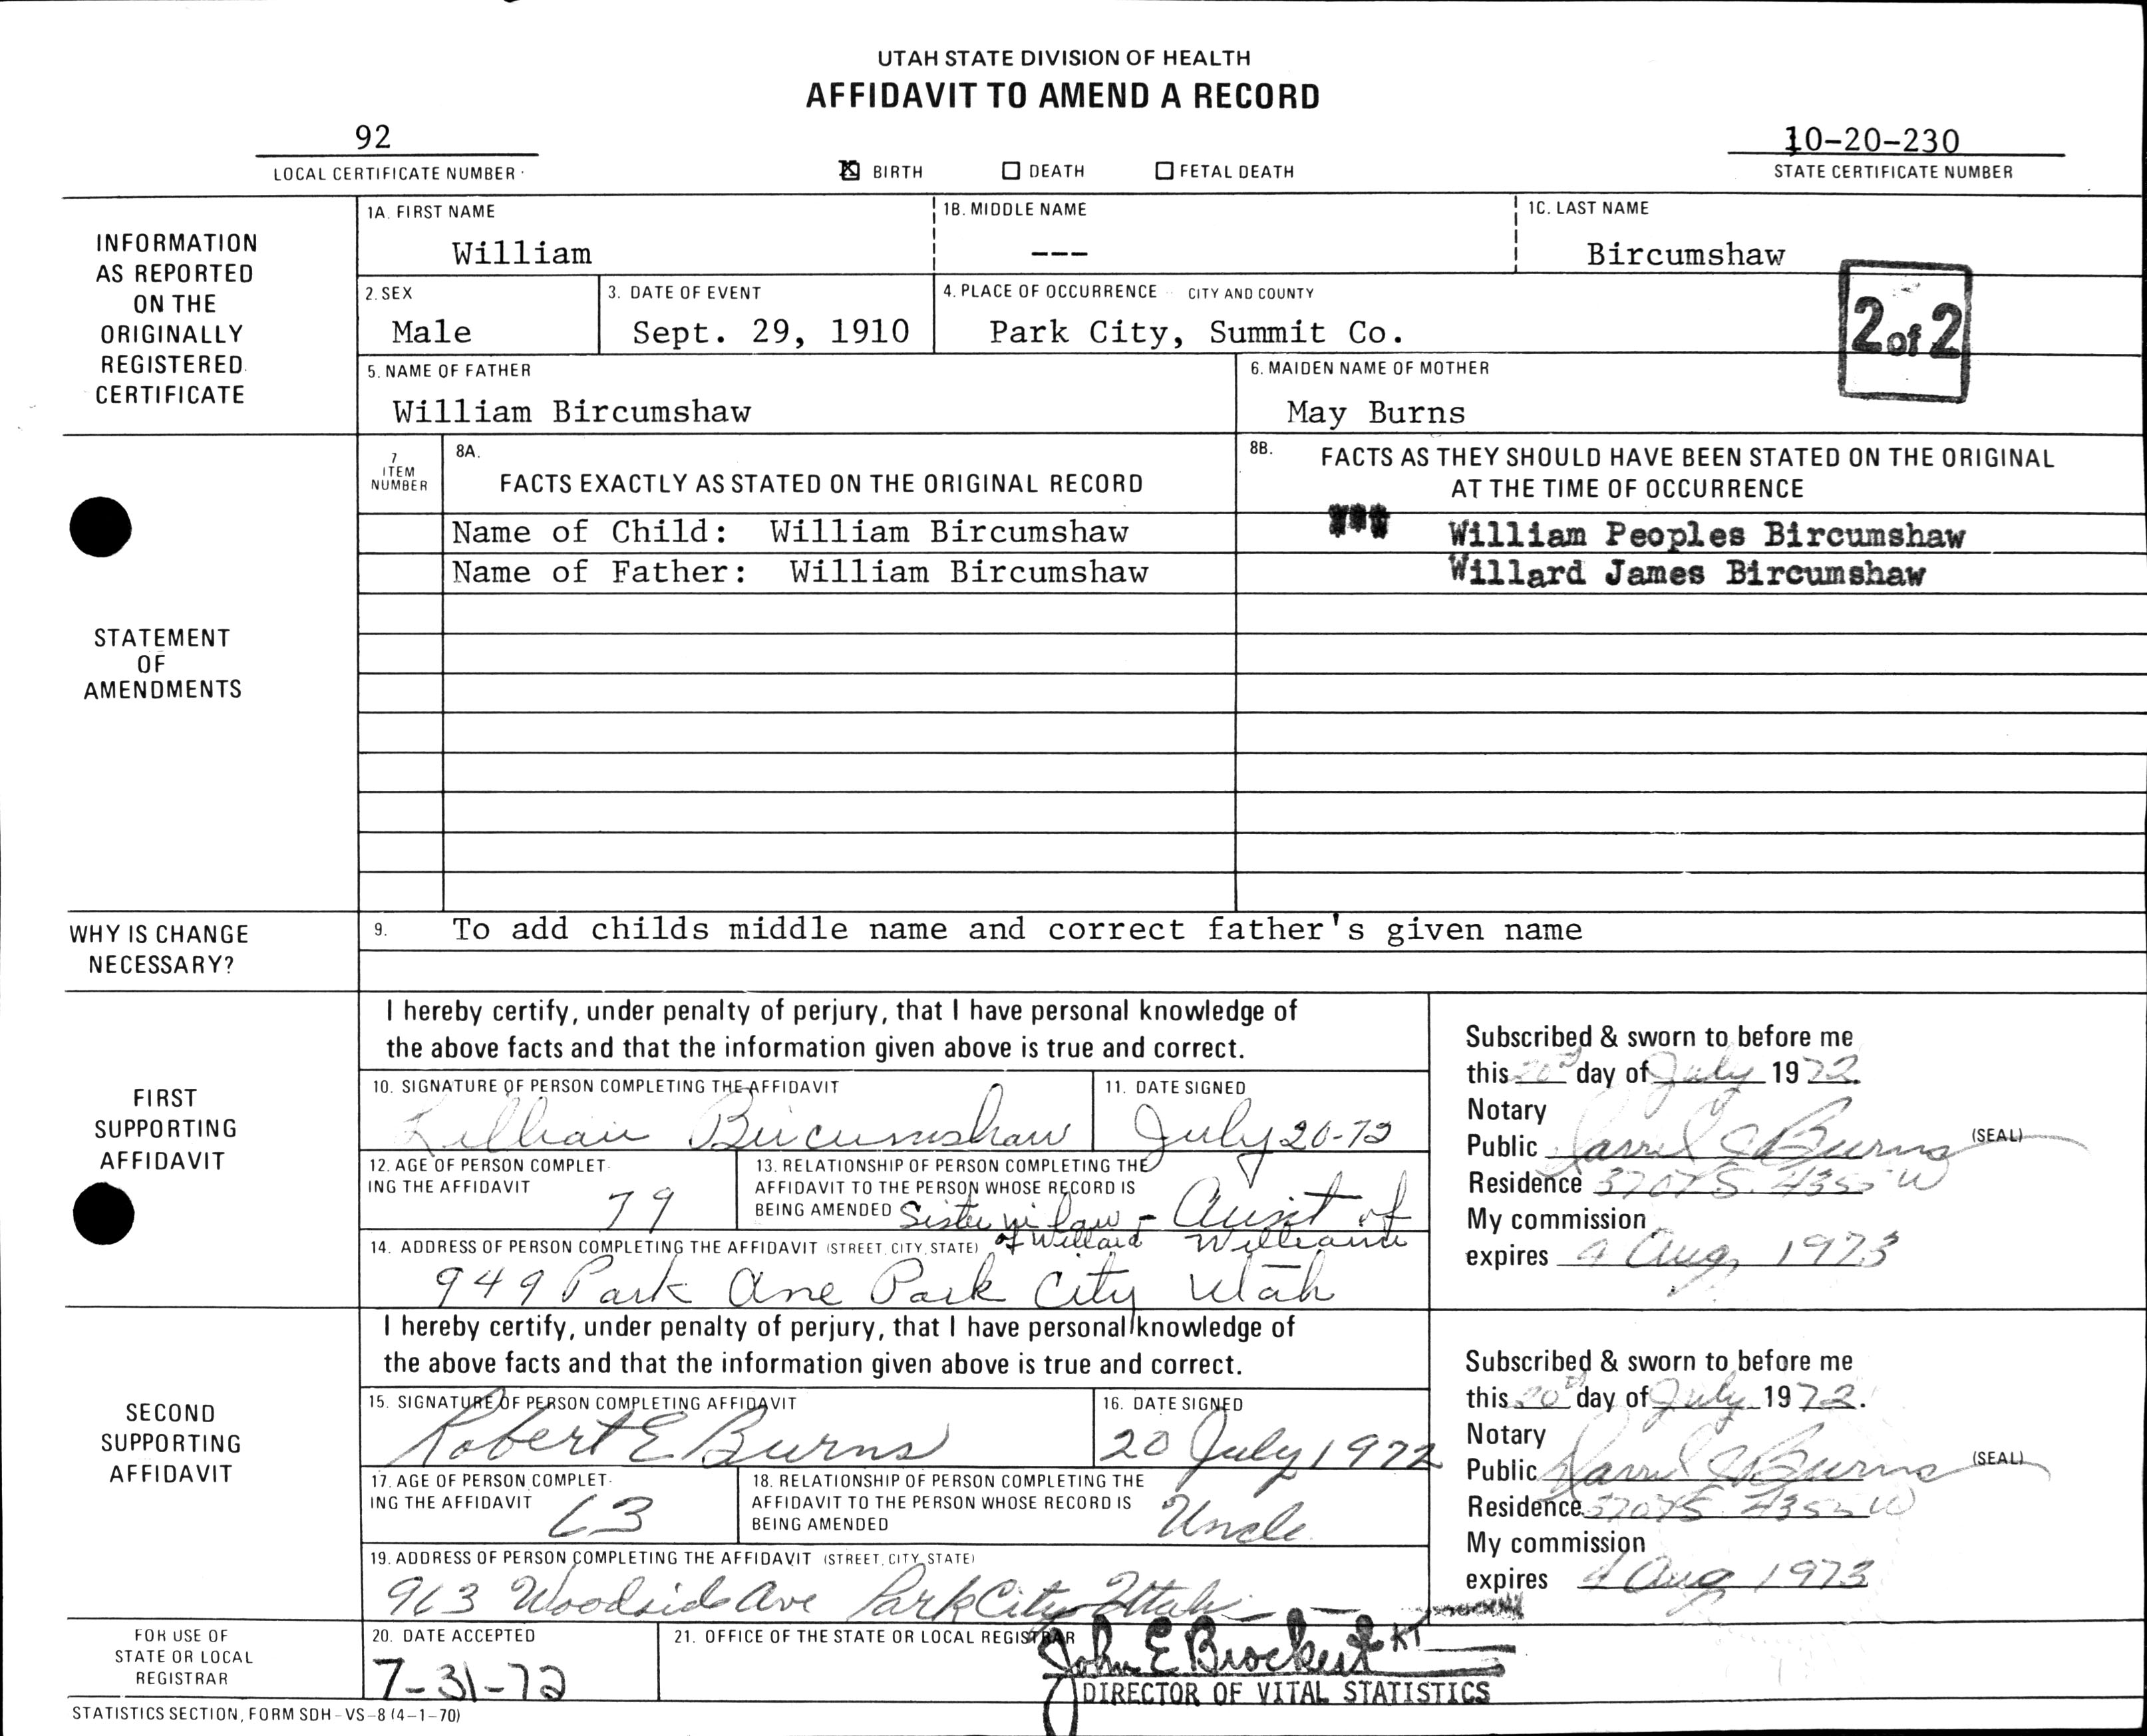 UTAH STATE DIVISION OF HEALTH
AFFIDAVIT TO AMEND A RECORD
92
LOCAL CERTIFICATE NUMBER
BIRTH DEATH FETAL DEATH
10-20-230
STATE CERTIFICATE NUMBER
INFORMATION
AS REPORTED
ON THE
ORIGINALLY
REGISTERED
CERTIFICATE
1A. FIRST NAME
William
1B. MIDDLE NAME
---
1C. LAST NAME
Bircumshaw
2. SEX
Male
3. DATE OF EVENT
Sept. 29, 1910
4. PLACE OF OCCURRENCE CITY AND COUNTY
Park City, Summit Co.
2 of 2
5. NAME OF FATHER
William Bircumshaw
6. MAIDEN NAME OF MOTHER
May Burns
STATEMENT
OF
AMENDMENTS
7
ITEM
NUMBER
8A.
FACTS EXACTLY AS STATED ON THE ORIGINAL RECORD
8B. FACTS AS THEY SHOULD HAVE BEEN STATED ON THE ORIGINAL
AT THE TIME OF OCCURRENCE
Name of Child: William Bircumshaw
William Peoples Bircumshaw
Name of Father: William Bircumshaw
Willard James Bircumshaw
WHY IS CHANGE
NECESSARY?
9. To add childs middle name and correct father's given name
FIRST
SUPPORTING
AFFIDAVIT
I hereby certify, under penalty of perjury, that I have personal knowledge of
the above facts and that the information given above is true and correct.
10. SIGNATURE OF PERSON COMPLETING THE AFFIDAVIT
Lillian Bircumshaw
11. DATE SIGNED
July 20-72
12. AGE OF PERSON COMPLET-
ING THE AFFIDAVIT
79
13. RELATIONSHIP OF PERSON COMPLETING THE
AFFIDAVIT TO THE PERSON WHOSE RECORD IS
BEING AMENDED Sister in law - Aunt of
of Willard William
14. ADDRESS OF PERSON COMPLETING THE AFFIDAVIT (STREET, CITY, STATE)
949 Park Ave Park City Utah
Subscribed & sworn to before me
this 20th day of July 1972.
Notary
Public Burns (SEAL)
Residence 3707 S. 4355 W
My commission
expires 4 Aug, 1973
SECOND
SUPPORTING
AFFIDAVIT
I hereby certify, under penalty of perjury, that I have personal knowledge of
the above facts and that the information given above is true and correct.
15. SIGNATURE OF PERSON COMPLETING AFFIDAVIT
Robert E Burns
16. DATE SIGNED
20 July 1972
17. AGE OF PERSON COMPLET-
ING THE AFFIDAVIT
63
18. RELATIONSHIP OF PERSON COMPLETING THE
AFFIDAVIT TO THE PERSON WHOSE RECORD IS
BEING AMENDED
Uncle
19. ADDRESS OF PERSON COMPLETING THE AFFIDAVIT (STREET, CITY, STATE)
963 Woodside Ave Park City Utah
Subscribed & sworn to before me
this 20th day of July 1972.
Notary
Public Burns (SEAL)
Residence 3707 S. 4355 W
My commission
expires 4 Aug 1973
FOR USE OF
STATE OR LOCAL
REGISTRAR
20. DATE ACCEPTED
7-31-72
21. OFFICE OF THE STATE OR LOCAL REGISTRAR
John E Brockert KT
DIRECTOR OF VITAL STATISTICS
STATISTICS SECTION, FORM SDH-VS-8 (4-1-70)